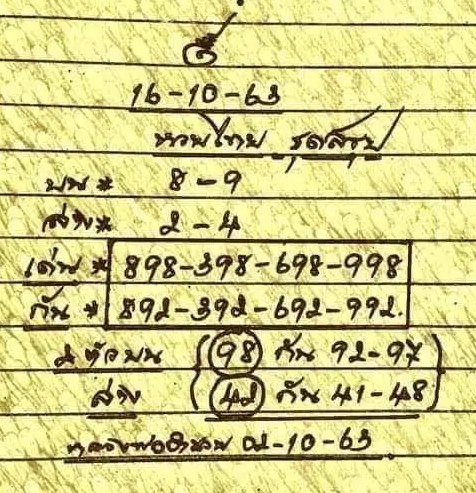 16-10-63
หวยไทย ชุดสรุป
บน * 8-9
ล่าง * 2-4
เด่น * 898-398-698-998
กัน * 892-392-692-992.
2 ตัวบน { 98 กัน 92-97 }
ล่าง { 42 กัน 41-48 }
02-10-63